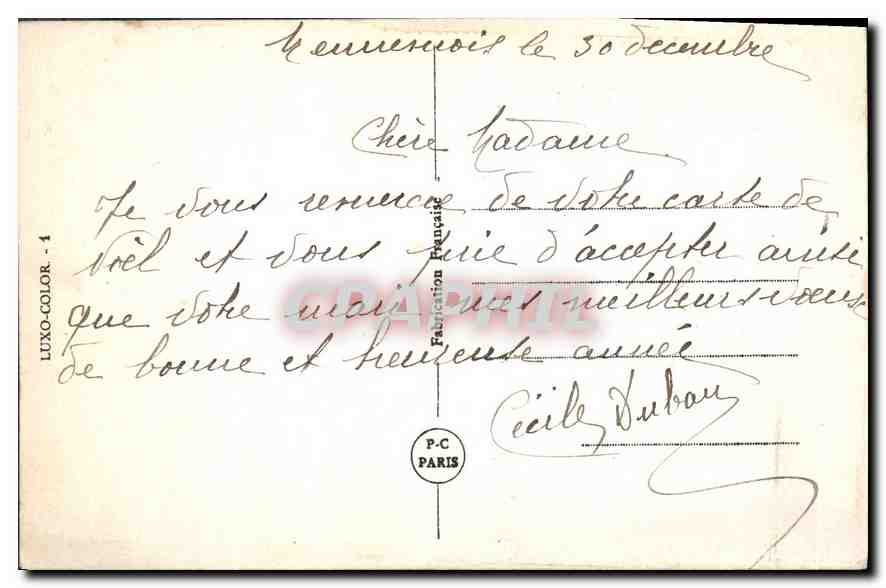 le 30 decembre
Chère Madame
Je vous remercie de votre carte de
Noël et vous prie d'accepter ainsi
que votre mari mes meilleurs vœux
de bonne et heureuse année
Cécile
LUXO-COLOR - 1
Fabrication Française
P-C
PARIS
CPARPHIL